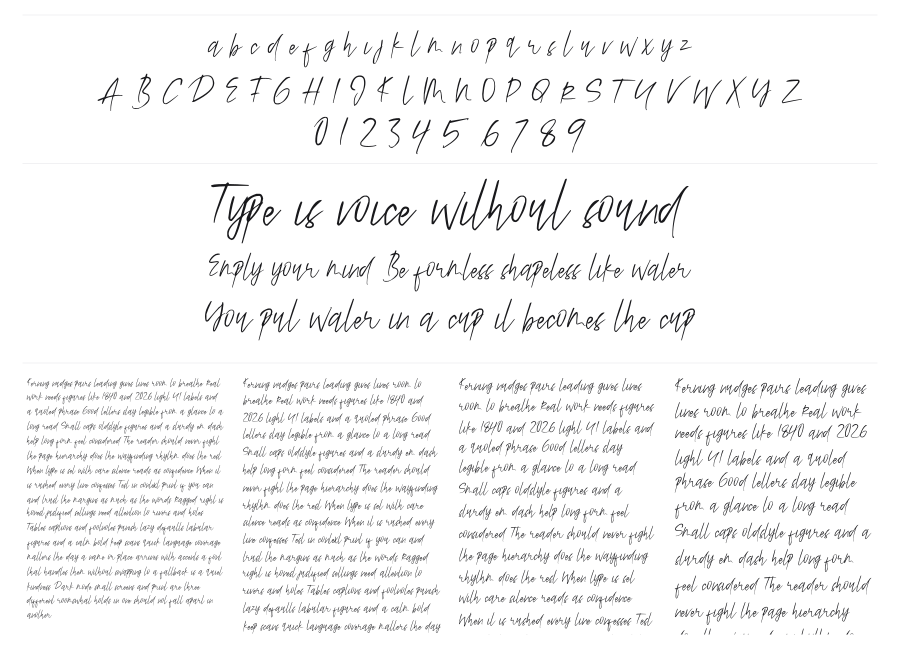 a b c d e f g h i j k l m n o p q r s t u v w x y z
A B C D E F G H I J K L M N O P Q R S T U V W X Y Z
0 1 2 3 4 5 6 7 8 9
Type is voice without sound
Empty your mind Be formless shapeless like water
You put water in a cup it becomes the cup
Kerning nudges pairs leading gives lines room to breathe Real
work needs figures like 1840 and 2026 light UI labels and
a quoted phrase Good letters stay legible from a glance to a
long read Small caps oldstyle figures and a sturdy en dash
help long form feel considered The reader should never fight
the page hierarchy does the wayfinding rhythm does the rest
When type is set with care silence reads as confidence When it
is rushed every line confesses Test in context print if you can
and trust the margins as much as the words Ragged right is
honest justified settings need attention to rivers and holes
Tables captions and footnotes punch lazy defaults tabular
figures and a calm bold keep scans quick language coverage
matters the day a name or place arrives with accents a font
that handles them without swapping to a fallback is a quiet
kindness Dark mode small screens and print are three
different rooms what holds in one should not fall apart in
another
Kerning nudges pairs leading gives lines room to
breathe Real work needs figures like 1840 and
2026 light UI labels and a quoted phrase Good
letters stay legible from a glance to a long read
Small caps oldstyle figures and a sturdy en dash
help long form feel considered The reader should
never fight the page hierarchy does the wayfinding
rhythm does the rest When type is set with care
silence reads as confidence When it is rushed every
line confesses Test in context print if you can and
trust the margins as much as the words Ragged
right is honest justified settings need attention to
rivers and holes Tables captions and footnotes punch
lazy defaults tabular figures and a calm bold
keep scans quick language coverage matters the day
Kerning nudges pairs leading gives lines
room to breathe Real work needs figures
like 1840 and 2026 light UI labels and
a quoted phrase Good letters stay
legible from a glance to a long read
Small caps oldstyle figures and a
sturdy en dash help long form feel
considered The reader should never fight
the page hierarchy does the wayfinding
rhythm does the rest When type is set
with care silence reads as confidence
When it is rushed every line confesses Test
Kerning nudges pairs leading gives
lines room to breathe Real work
needs figures like 1840 and 2026
light UI labels and a quoted
phrase Good letters stay legible
from a glance to a long read
Small caps oldstyle figures and a
sturdy en dash help long form
feel considered The reader should
never fight the page hierarchy